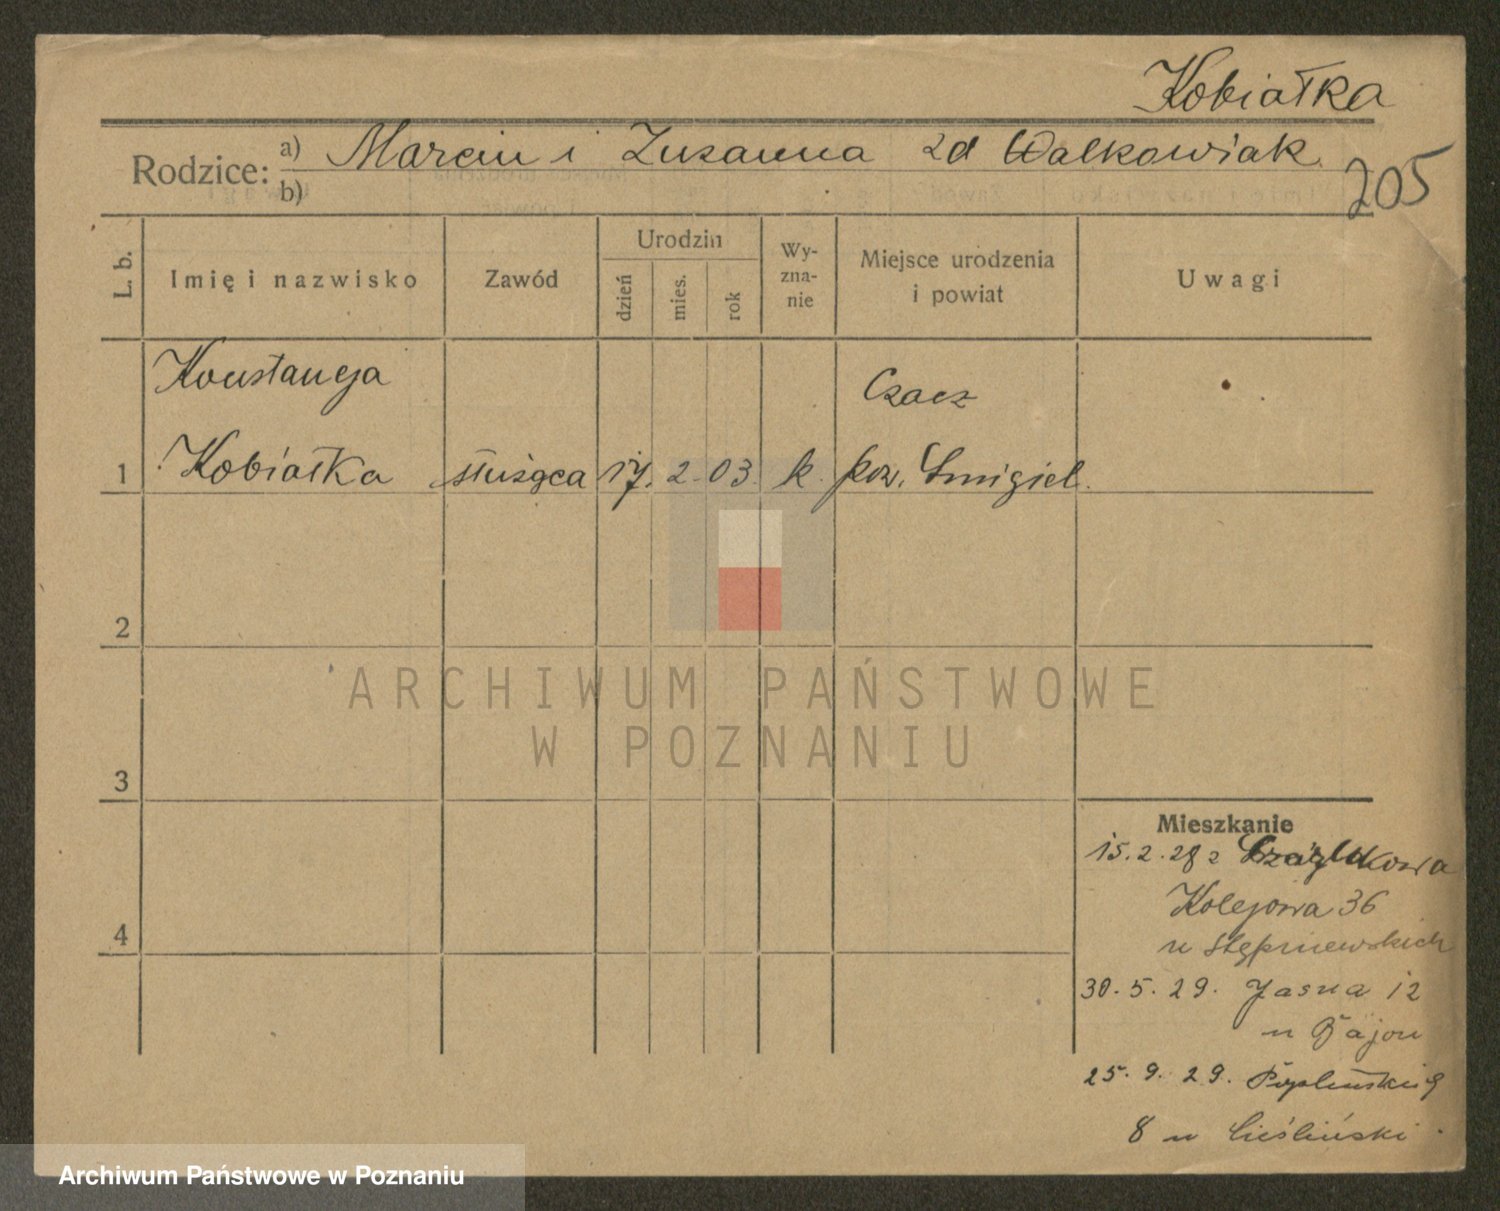 Kobiałka
Rodzice: a) Marcin i Zuzanna zd Walkowiak
b)
205
L. b.
Imię i nazwisko
Zawód
Urodzin
dzień
mies.
rok
Wy-
zna-
nie
Miejsce urodzenia
i powiat
Uwagi
Konstancja
Czacz
1 Kobiałka służąca 17. 2. 03. k. pow. Śmigiel.
2
3
4
ARCHIWUM PAŃSTWOWE
W POZNANIU
Mieszkanie
15.2.28 z
Kolejowa 36
u Stępniewskich
30.5.29. Jasna 12
u Bajon
25.9.29.
8 u Cieśliński
Archiwum Państwowe w Poznaniu